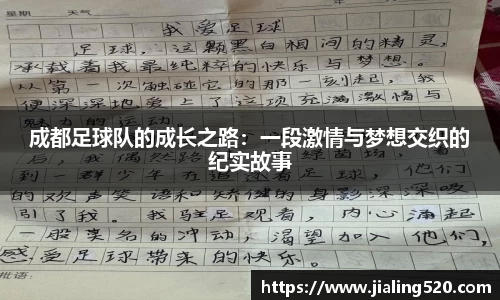 星期 天气
我爱足球
足球，这颗黑白相间的精灵，
承载着我最纯粹的快乐与梦想。
从第一次触碰它的那一刻起，我
便深深地爱上了这项充满激情与
魅力的运动。
成都足球队的成长之路：一段激情与梦想交织的
纪实故事
到一群少年在追逐着足球，他们
的欢声笑语和矫健的身影深深吸
引了我。我驻足观看，内心涌起
一股莫名的冲动，渴望加入他们，
感受足球带来的快乐。
批语：
https://www.jialing520.com